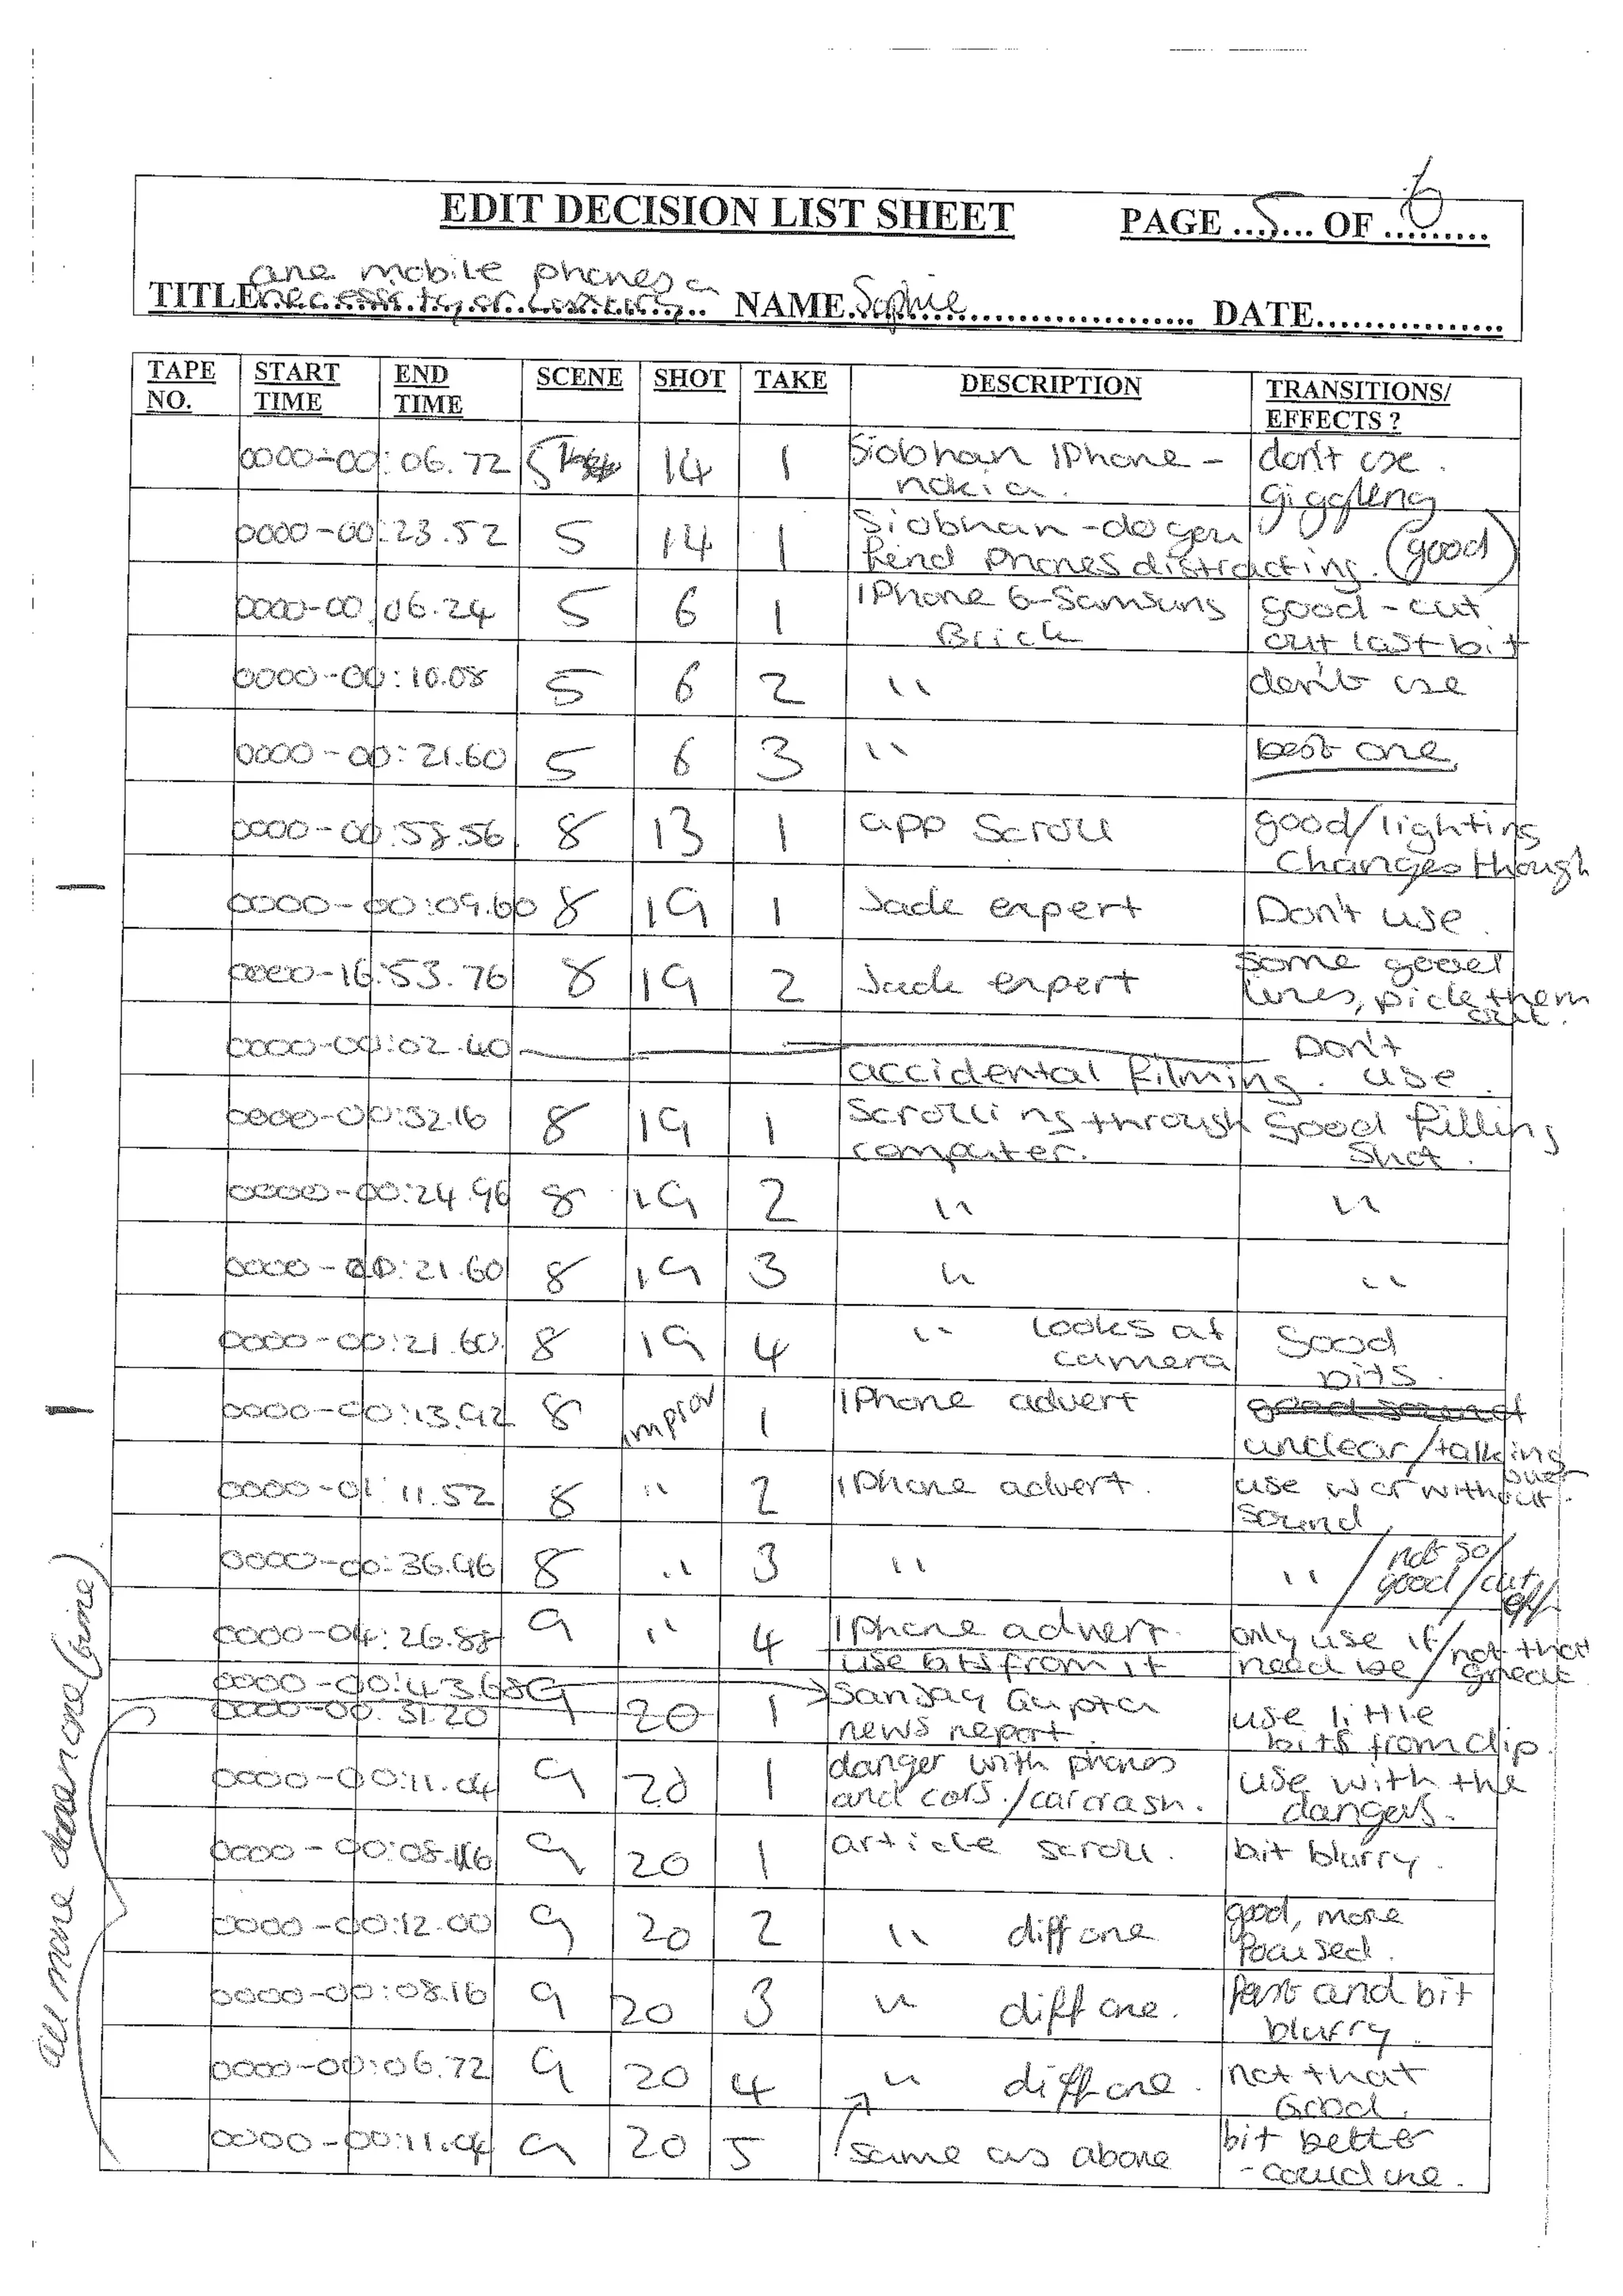 EDIT DECISION LIST SHEET PAGE ...5... OF ...6......
are mobile phones a
TITLE necessity or luxury NAME. Sophie DATE................
TAPE NO. START TIME END TIME SCENE SHOT TAKE DESCRIPTION TRANSITIONS/ EFFECTS ?
0000-00:06.72 5 14 1 Siobhan IPhone - nokia. don't use. giggling
0000-00:23.52 5 14 1 Siobhan - do you find phones distracting. (good)
0000-00:06.24 5 6 1 IPhone 6-Samsung Brick good - cut out last bit
0000-00:10.08 5 6 2 " don't use
0000-00:21.60 5 6 3 " best one
0000-00:58.56 8 13 1 app scroll good/lighting changes though
0000-00:09.60 8 19 1 Jade expert Don't use.
0000-16:53.76 8 19 2 Jade expert some good lines, pick them out.
0000-00:02.40 accidental filming. Don't use.
0000-00:52.16 8 19 1 Scrolling through computer. Good filling shot.
0000-00:24.96 8 19 2 " "
0000-00:21.60 8 19 3 " "
0000-00:21.60 8 19 4 " looks at camera Good bits.
0000-00:13.92 8 improv 1 IPhone advert good sound unclear/talking over
0000-01:11.52 8 " 2 IPhone advert. use w or without sound
0000-00:36.96 8 " 3 " " / not so good / cut off
0000-04:26.88 9 " 4 Iphone advert. use bits from it only use if need be / not that great
0000-00:43.68 9
0000-00:31.20 9 20 1 Sanjay Gupta news report. use little bits from clip.
0000-00:11.04 9 20 1 danger with phones and cars./car crash. use with the dangers.
0000-00:08.16 9 20 1 article scroll. bit blurry.
0000-00:12.00 9 20 2 " diff one good, more focused.
0000-00:08.16 9 20 3 " diff one. fast and bit blurry.
0000-00:06.72 9 20 4 " diff one. not that Good.
0000-00:11.04 9 20 5 same as above bit better - could use.
all more
(time)